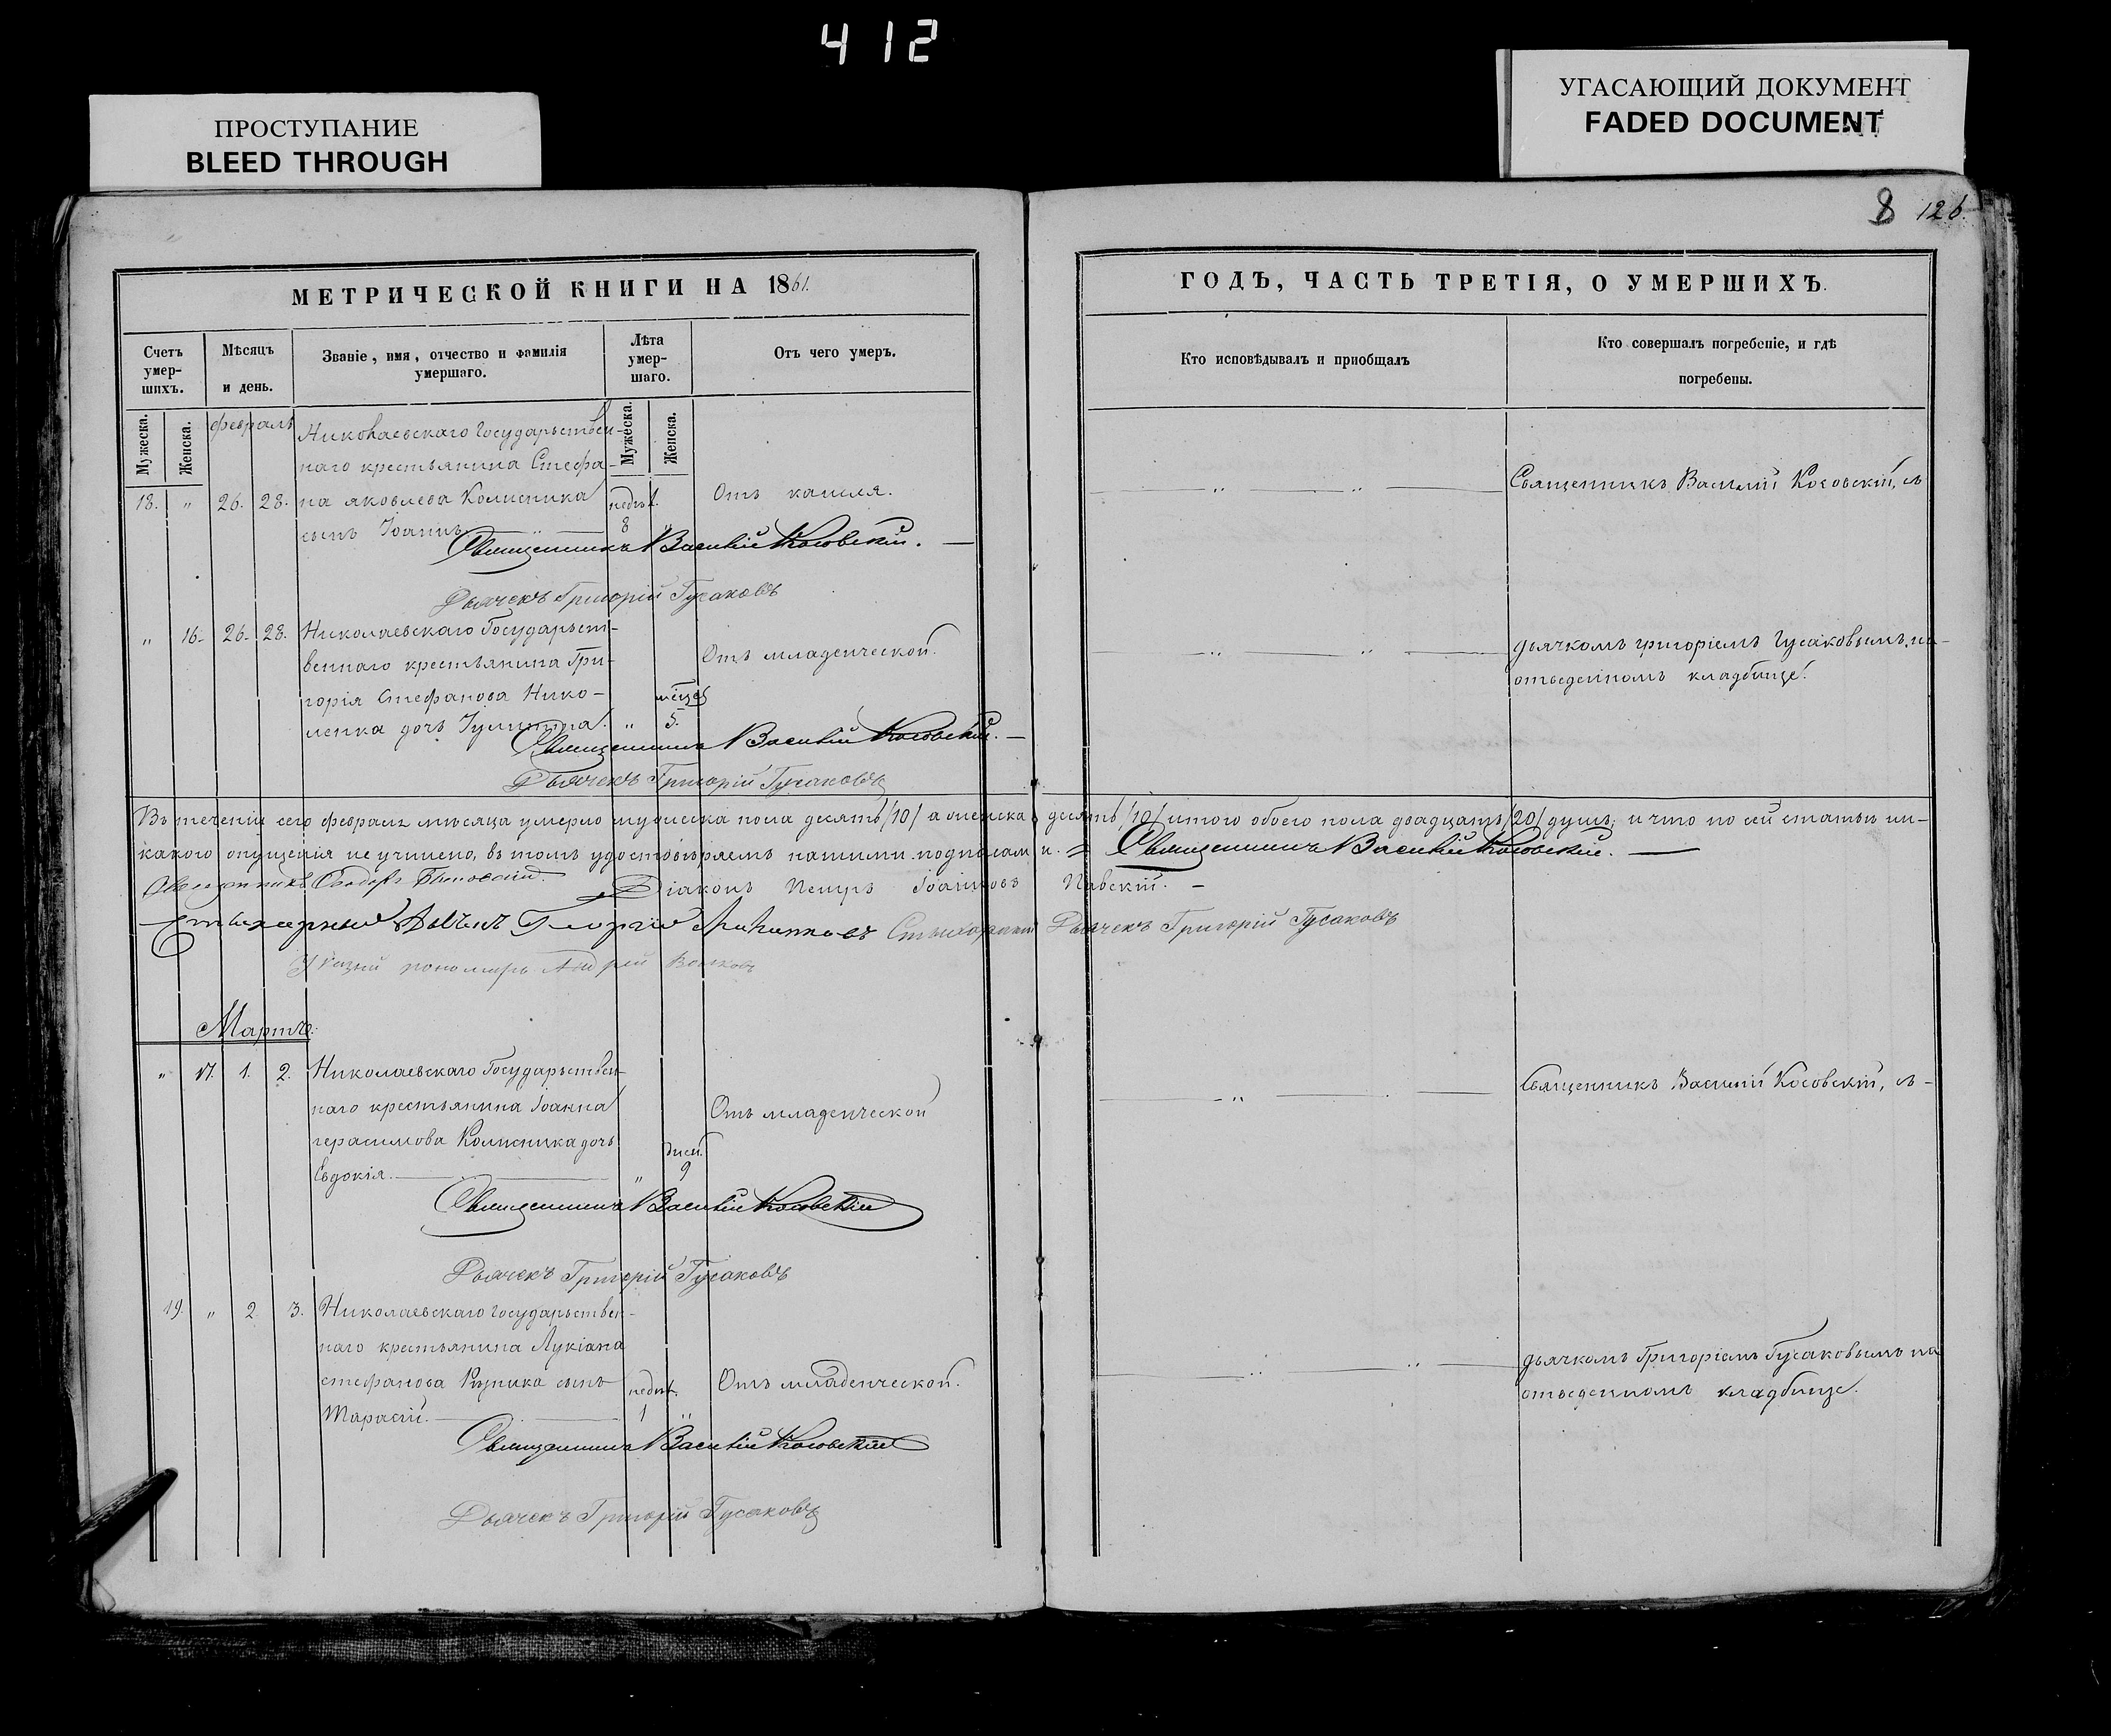 412
ПРОСТУПАНИЕ
BLEED THROUGH
УГАСАЮЩИЙ ДОКУМЕНТ
FADED DOCUMENT
8 126.
МЕТРИЧЕСКОЙ КНИГИ НА 1861.
Счетъ умер-шихъ.
Мѣсяцъ и день.
Званіе, имя, отчество и фамилія умершаго.
Лѣта умер-шаго.
Отъ чего умеръ.
Мужеска.
Женска.
Мужеска.
Женска.
февраль
Николаевскаго Государьствен-
наго крестьянина Стефа-
18. " 26. 28. на яковлева Колисника недѣл. Отъ кашля.
сынъ Іоаннъ 8 "
Священникъ Василій Косовскій.
Дьячекъ Григорій Гусаковъ
" 16. 26. 28. Николаевскаго Государьст-
веннаго крестьянина Гри- Отъ младенческой.
горія Стефанова Нико- мѣсяц
ленка дочь Іулитта. " 5.
Священникъ Василій Косовскій.
Дьячекъ Григорій Гусаковъ
Въ теченіи сего февраля мѣсяца умерло мужеска пола десять /10/ а женска
какого опущенія не учинено, въ томъ удостовѣряемъ нашими подписами.
Священникъ Ѳеодоръ
Діаконъ Петръ Іоанновъ
Стихарный Дьячекъ Георгій Стихарный
Указный пономарь Андрей Волковъ
Мартъ.
" 17. 1. 2. Николаевскаго Государьствен-
наго крестьянина Іоанна Отъ младенческой
герасимова Колисника дочь дней.
Евдокія. " 9
Священникъ Василій Косовскій
Дьячекъ Григорій Гусаковъ
19. " 2 3. Николаевскаго Государьствен-
наго крестьянина Лукіана
стефанова Рѣзника сынъ недѣл. Отъ младенческой.
Тарасій. 1 "
Священникъ Василій Косовскій
Дьячекъ Григорій Гусаковъ
ГОДЪ, ЧАСТЬ ТРЕТІЯ, О УМЕРШИХЪ.
Кто исповѣдывалъ и пріобщалъ
Кто совершалъ погребеніе, и гдѣ
погребены.
Священникъ Василій Косовскій, съ
дьячкомъ григоріемъ Гусаковымъ, на
отведенномъ кладбище.
десять /10/ итого обоего пола двадцать /20/ душъ; и что по сей статьи ни-
Священникъ Василій Косовскій.
Павскій.
Дьячекъ Григорій Гусаковъ
Священникъ Василій Косовскій, съ
дьячкомъ Григоріемъ Гусаковымъ на
отведенномъ кладбище.